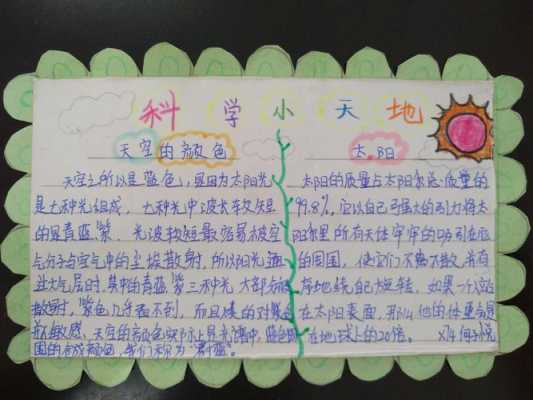 科学小天地
天空的颜色
天空之所以是蓝色,是因为太阳光
是七种光组成,七种光中波长较短
的是青蓝紫,光波较短最容易被空
气分子与空气中的尘埃散射,所以阳光通
过大气层时,其中的青蓝紫三种光大部分被
散射,紫色几乎看不到,而且人的对紫色
不敏感,天空的颜色实际上是光谱中,蓝色
围的合成颜色,我们称为"蔚蓝"。
太阳
太阳的质量占太阳系总质量的
99.8%,它以自己强大的引力将太
阳系里所有天体牢牢的吸引在它
的周围,使它们不离不散,井有
有地绕自己旋转,如果一个人站
在太阳表面,那么他的体重会是
在地球上的20倍。